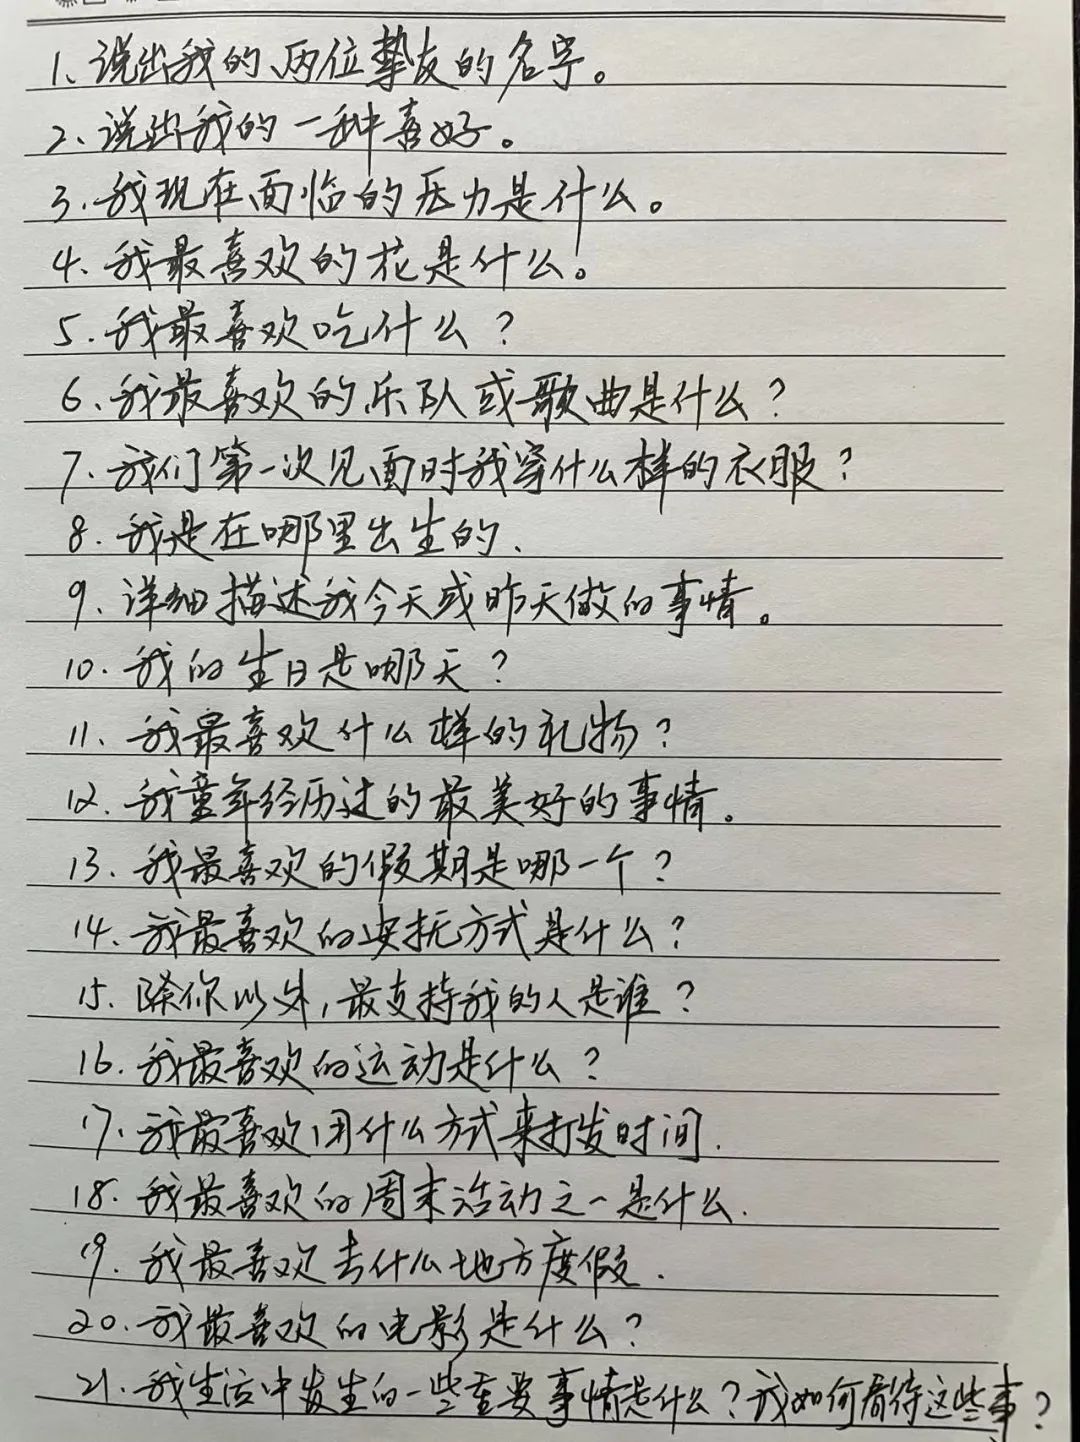 1、说出我的两位挚友的名字。
2、说出我的一种喜好。
3.我现在面临的压力是什么。
4、我最喜欢的花是什么。
5.我最喜欢吃什么？
6、我最喜欢的乐队或歌曲是什么？
7、我们第一次见面时我穿什么样的衣服？
8.我是在哪里出生的、
9、详细描述我今天或昨天做的事情。
10.我的生日是哪天？
11、我最喜欢什么样的礼物？
12.我童年经历过的最美好的事情。
13.我最喜欢的假期是哪一个？
14、我最喜欢的安抚方式是什么？
15.除你以外,最支持我的人是谁？
16.我最喜欢的运动是什么？
17、我最喜欢用什么方式来打发时间.
18.我最喜欢的周末活动之一是什么.
19.我最喜欢去什么地方度假.
20.我最喜欢的电影是什么？
21.我生活中发生的一些重要事情是什么？我如何看待这些事？